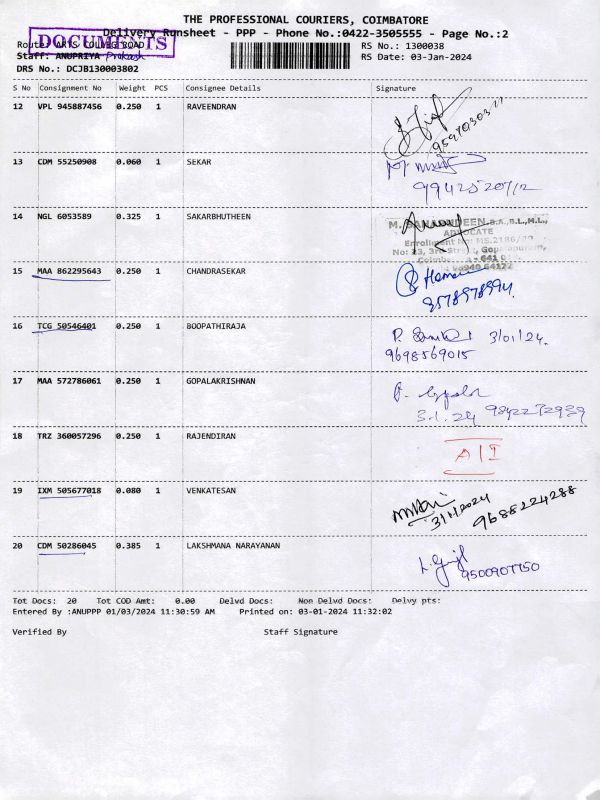 THE PROFESSIONAL COURIERS, COIMBATORE
Delivery Runsheet - PPP - Phone No.:0422-3505555 - Page No.:2
DOCUMENTS
Route: ARTS COLLEGE ROAD RS No.: 1300038
Staff: ANUPRIYA Prakash RS Date: 03-Jan-2024
DRS No.: DCJB130003802
S No Consignment No Weight PCS Consignee Details Signature
12 VPL 945887456 0.250 1 RAVEENDRAN
13 CDM 55250908 0.060 1 SEKAR
14 NGL 6053589 0.325 1 SAKARBHUTHEEN
ADVOCATE
15 MAA 862295643 0.250 1 CHANDRASEKAR
8578978994.
16 TCG 50546401 0.250 1 BOOPATHIRAJA
3/01/24.
9698569015
17 MAA 572786061 0.250 1 GOPALAKRISHNAN
3.1.24 9842272939
18 TRZ 360057296 0.250 1 RAJENDIRAN
19 IXM 505677018 0.080 1 VENKATESAN
3/1/2024 9688224288
20 CDM 50286045 0.385 1 LAKSHMANA NARAYANAN
9500907750
Tot Docs: 20 Tot COD Amt: 0.00 Delvd Docs: Non Delvd Docs: Delvy pts:
Entered By :ANUPPP 01/03/2024 11:30:59 AM Printed on: 03-01-2024 11:32:02
Verified By Staff Signature